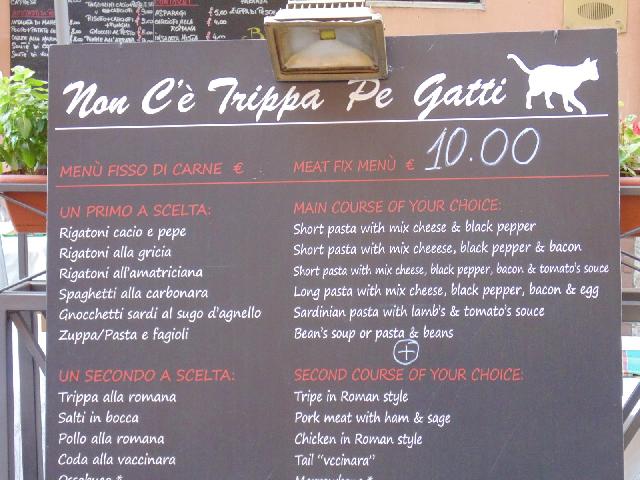 Non C'è Trippa Pe Gatti
MENÙ FISSO DI CARNE € MEAT FIX MENÙ € 10.00
UN PRIMO A SCELTA:
Rigatoni cacio e pepe
Rigatoni alla gricia
Rigatoni all'amatriciana
Spaghetti alla carbonara
Gnocchetti sardi al sugo d'agnello
Zuppa/Pasta e fagioli
MAIN COURSE OF YOUR CHOICE:
Short pasta with mix cheese & black pepper
Short pasta with mix cheeese, black pepper & bacon
Short pasta with mix cheese, black pepper, bacon & tomato's souce
Long pasta with mix cheese, black pepper, bacon & egg
Sardinian pasta with lamb's & tomato's souce
Bean's soup or pasta & beans
+
UN SECONDO A SCELTA:
Trippa alla romana
Salti in bocca
Pollo alla romana
Coda alla vaccinara
SECOND COURSE OF YOUR CHOICE:
Tripe in Roman style
Pork meat with ham & sage
Chicken in Roman style
Tail "vccinara"